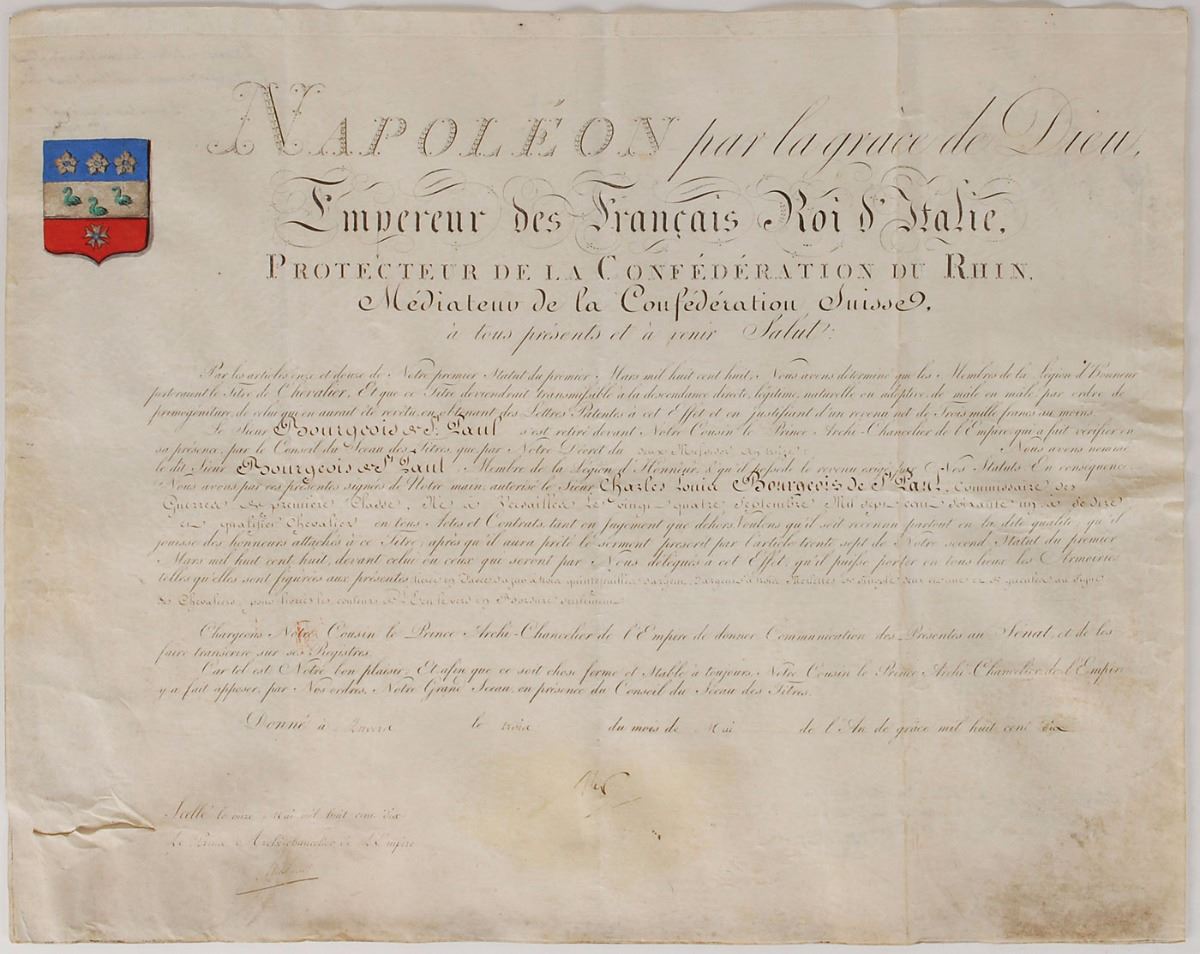 NAPOLÉON par la grâce de Dieu,
Empereur des Français Roi d'Italie,
PROTECTEUR DE LA CONFÉDÉRATION DU RHIN,
Médiateur de la Confédération Suisse,
à tous présents et à venir Salut:
Par les articles onze et douze de Notre premier Statut du premier Mars mil huit cent huit, Nous avons déterminé que les Membres de la Légion d'Honneur
porteraient le Titre de Chevalier, Et que ce Titre deviendrait transmissible à la descendance directe, légitime, naturelle ou adoptive, de mâle en mâle, par ordre de
primogéniture, de celui qui en aurait été revêtu, en obtenant des Lettres Patentes à cet Effet et en justifiant d'un revenu net de Trois mille francs au moins.
Le Sieur Bourgeois de St. Paul s'est retiré devant Notre Cousin le Prince Archi-Chancelier de l'Empire, qui a fait vérifier en
sa présence, par le Conseil du Sceau des Titres, que par Notre Décret du Nous avons nommé
le dit Sieur Bourgeois de St Paul, Membre de la Légion d'Honneur, & qu'il possède le revenu exigé par Nos Statuts. En conséquence
Nous avons par ces présentes signées de Notre main, autorisé le Sieur Charles Louis Bourgeois de St Paul, Commissaire des
Guerres de première Classe, Né à Versailles le vingt quatre Septembre Mil sept cent soixante un, à se dire
et qualifier Chevalier en tous Actes et Contrats, tant en Jugement que dehors. Voulons qu'il soit reconnu partout en la dite qualité, qu'il
jouisse des honneurs attachés à ce Titre, après qu'il aura prêté le serment prescrit par l'article trente sept de Notre second Statut du premier
Mars mil huit cent huit, devant celui ou ceux que seront par Nous délégués à cet Effet, qu'il puisse porter en tous lieux les Armoiries
telles qu'elles sont figurées aux présentes tiercé en fasce d'azur à trois quintefeuilles d'argent, d'argent à trois Merlettes de Sinople deux et une et de gueules au Signe
des Chevaliers, pour livrées les couleurs de l'Ecu le verd en Bordure seulement
Chargeons Notre Cousin le Prince Archi-Chancelier de l'Empire de donner Communication des Présentes au Sénat, et de les
faire transcrire sur ses Registres.
Car tel est Notre bon plaisir, Et afin que ce soit chose ferme et Stable à toujours, Notre Cousin le Prince Archi-Chancelier de l'Empire
y a fait apposer, par Nos ordres, Notre Grand Sceau, en présence du Conseil du Sceau des Titres.
Donné à Anvers le trois du mois de Mai de l'An de grâce mil huit cent dix
Scellé le onze Mai mil huit cent dix
Le Prince Archichancelier de l'Empire